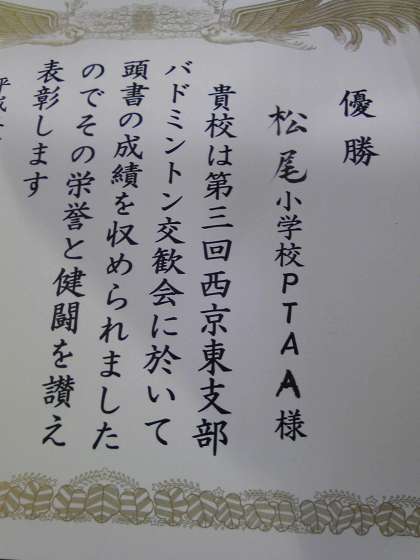 優勝
松尾小学校PTAA様
貴校は第三回西京東支部
バドミントン交歓会に於いて
頭書の成績を収められました
のでその栄誉と健闘を讃え
表彰します
平成